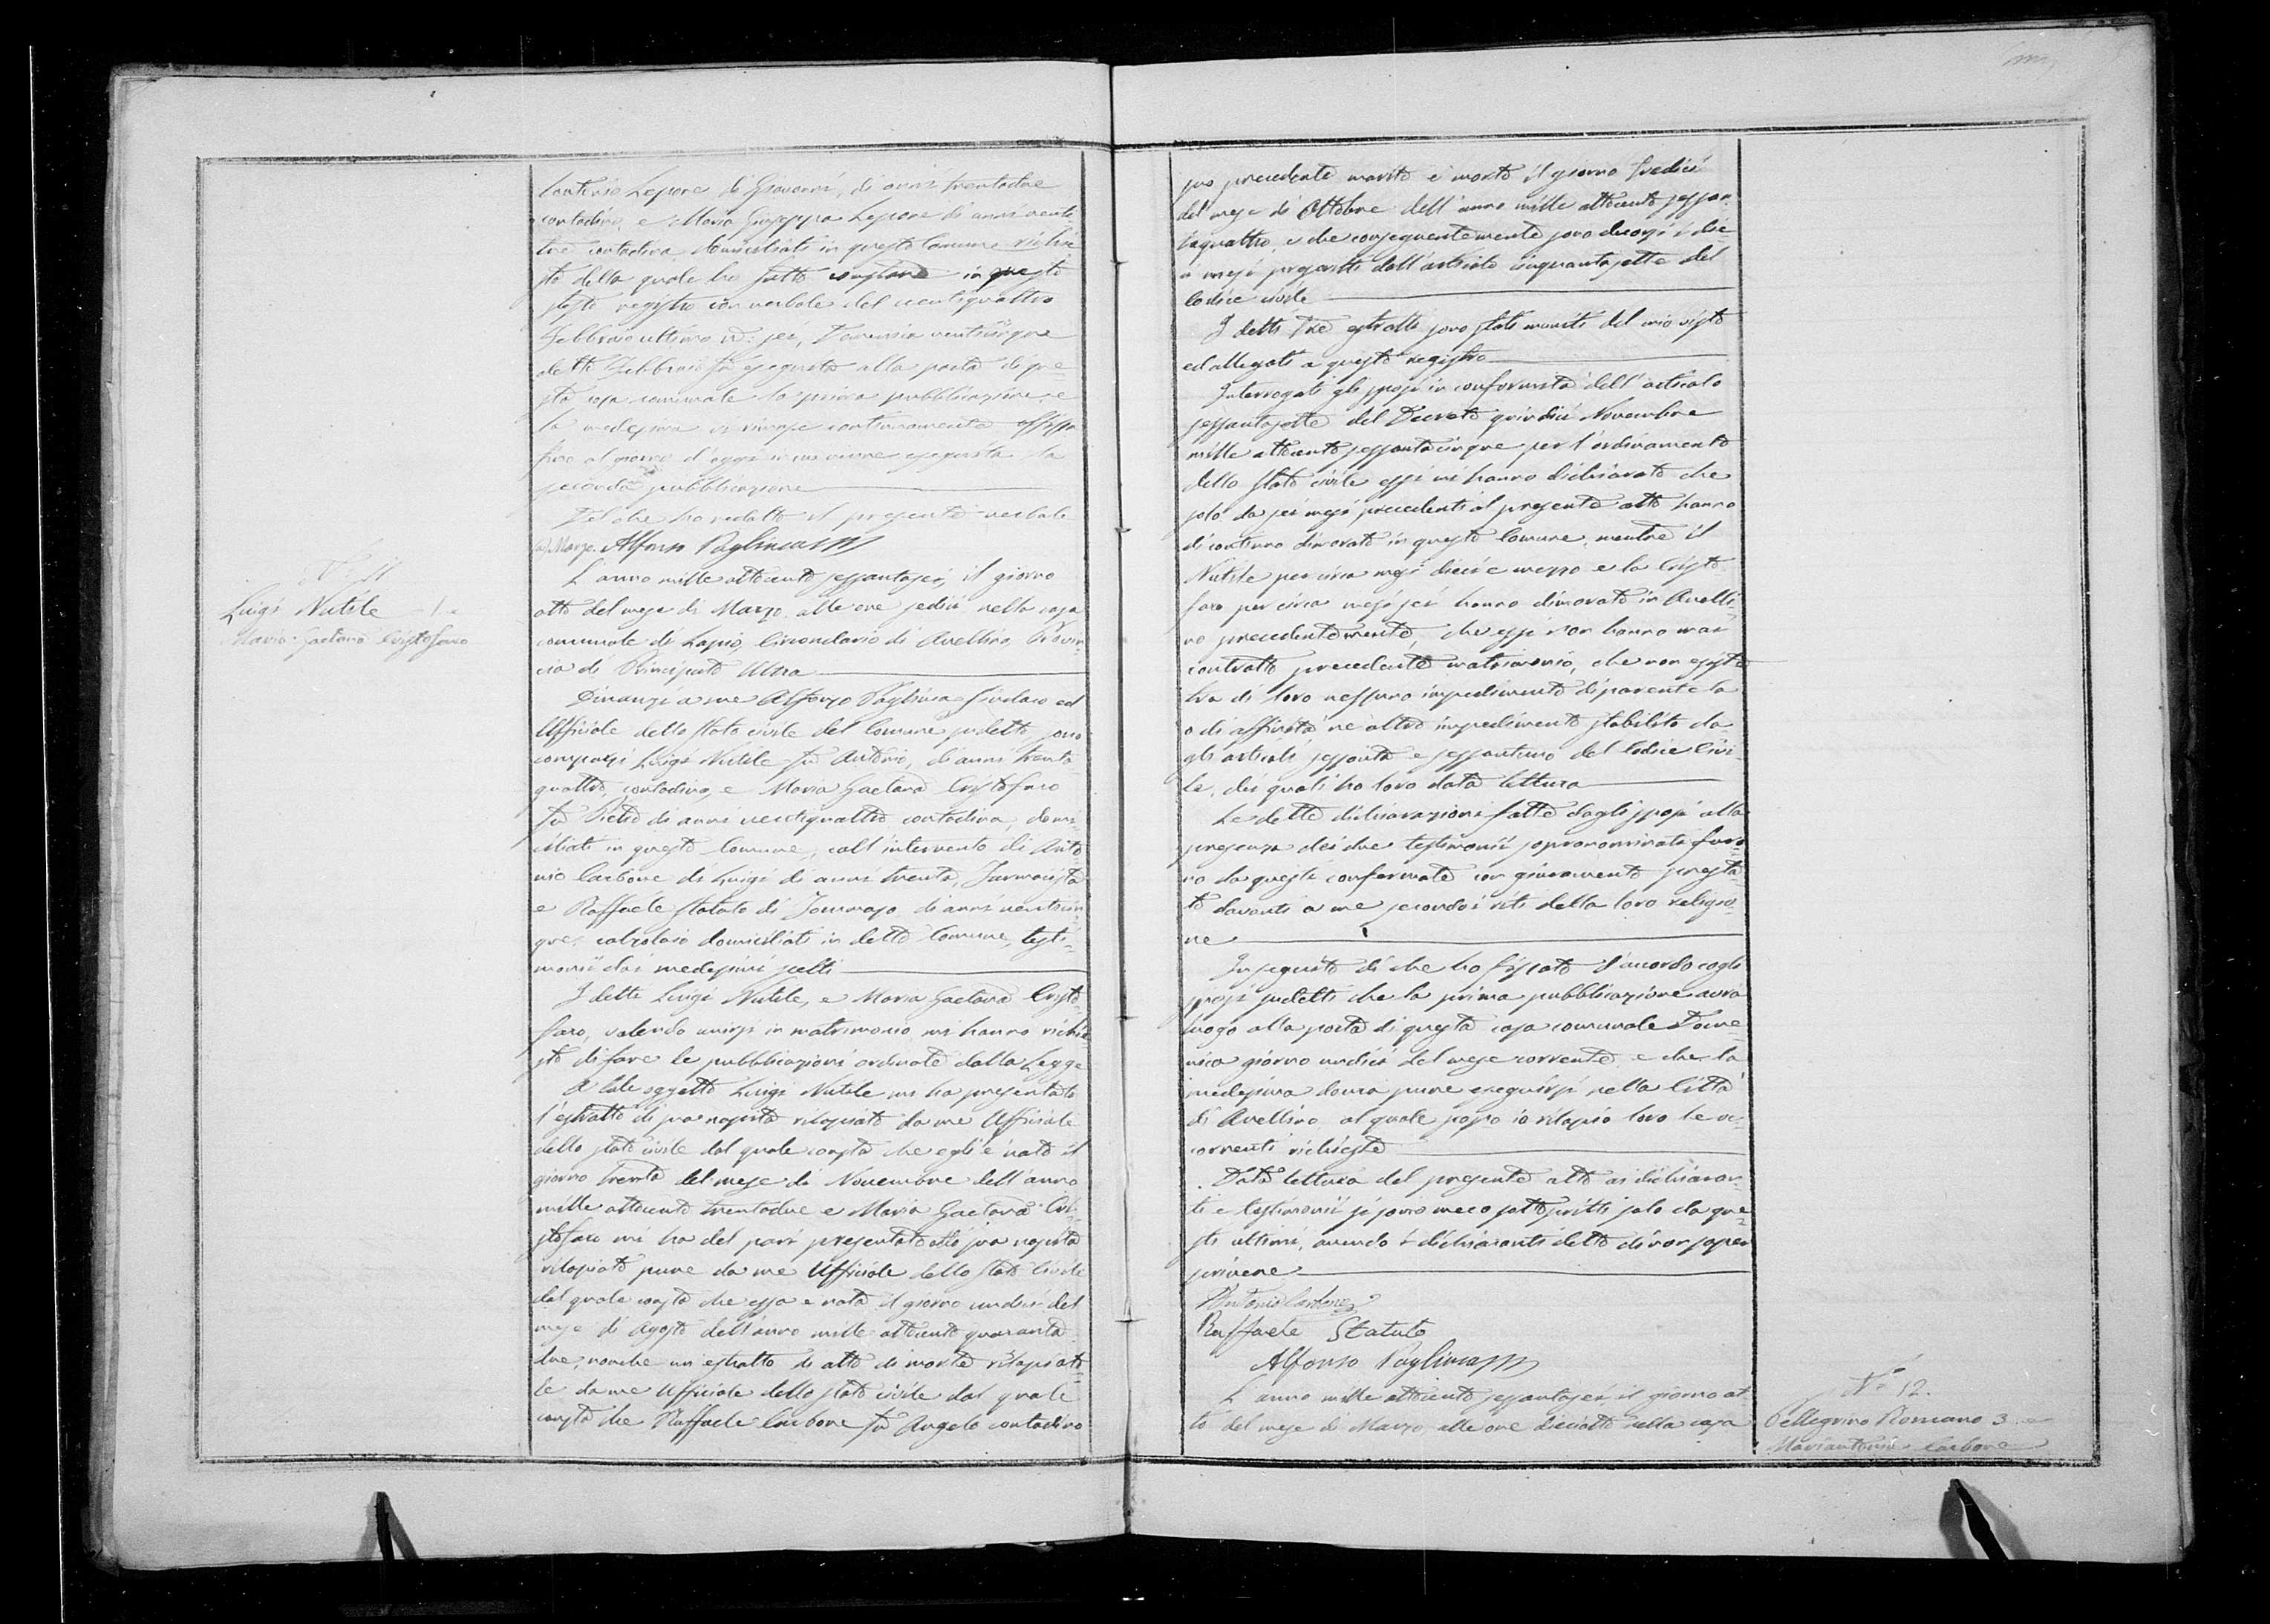 Lepore di Giovanni, di anni trentadue
contadino, e Maria Giuseppa Lepore di anni venti-
tre contadina, domiciliati in questo Comune richie
sta della quale ho fatto in questo
stesso registro con verbale del ventiquattro
Febbraio ultimo Domenica venticinque
detto Febbraio fu eseguita alla porta di que-
sta casa comunale la prima pubblicazione, e
la medesima vi rimase continuamente affissa
fino al giorno d'oggi in cui venne eseguita la
seconda pubblicazione
Del che ho redatto il presente verbale
Marzo. Alfonso Paglinca
N. 11
Luigi Nutile 1. e
Maria Gaetana Cristofaro
L'anno mille ottocento sessantasei, il giorno
otto del mese di Marzo, alle ore sedici nella casa
comunale di Lapio, Circondario di Avellino, Provin-
cia di Principato Ultra
Dinanzi a me Alfonso Paglinca Sindaco ed
Uffiziale dello stato civile del Comune sudetto sono
comparsi Luigi Nutile fu Antonio, di anni trenta-
quattro, contadino, e Maria Gaetana Cristofaro
fu di anni ventiquattro contadina, domi-
ciliati in questo Comune, coll'intervento di Anto-
nio Carbone di Luigi di anni trenta, Farmacista
e Raffaele Statuto di Tommaso di anni venticin-
que, calzolaio domiciliati in detto Comune, testi-
monii dai medesimi scelti
I detti Luigi Nutile, e Maria Gaetana Cristo-
faro, volendo unirsi in matrimonio mi hanno richie-
sto di fare le pubblicazioni ordinate dalla Legge
A tale oggetto Luigi Nutile mi ha presentato
l'estratto di sua nascita rilasciato da me Uffiziale
dello stato civile dal quale consta che egli è nato il
giorno trenta del mese di Novembre dell'anno
mille ottocento trentadue e Maria Gaetana Cri-
stofaro mi ha del pari presentato sua nascita
rilasciato pure da me Uffiziale dello stato Civile
dal quale consta che essa è nata il giorno undici del
mese di Agosto dell'anno mille ottocento quaranta-
due, nonchè un estratto di atto di morte rilasciato-
le da me Uffiziale dello stato civile dal quale
consta che Raffaele Carbone fu Angelo contadino
suo precedente marito è morto il giorno tredici
del mese di Ottobre dell'anno mille ottocento sessan-
taquattro, e che conseguentemente sono decorsi i die-
ci mesi prescritti dall'articolo cinquantasette del
Codice civile
I detti tre estratti sono stati muniti del mio visto
ed allegati a questo registro
Interrogati gli sposi in conformità dell'articolo
sessantasette del Decreto quindici Novembre
mille ottocento sessantacinque per l'ordinamento
dello stato civile essi mi hanno dichiarato che
solo da sei mesi precedenti il presente atto hanno
di continuo dimorato in questo Comune, mentre il
Nutile per circa mesi dieci e mezzo e la Cristo-
faro per circa mesi sei hanno dimorato in Avelli-
no precedentemente, che essi non hanno mai
contratto precedente matrimonio, che non esiste
tra di loro nessuno impedimento di parentela
o di affinità nè altro impedimento stabilito da-
gli articoli sessanta e sessantuno del Codice Civi-
le, dei quali ho loro data lettura
Le dette dichiarazioni fatte dagli sposi alla
presenza dei due testimonii sopranominati furo-
no da questi confermate con giuramento presta-
to davanti a me secondo i riti della loro religio-
ne
In seguito di che ho fissato d'accordo cogli
sposi sudetti che la prima pubblicazione avrà
luogo alla porta di questa casa comunale Dome-
nica giorno undici del mese corrente, e che la
medesima dovrà pure eseguirsi nella Città
di Avellino, al quale scopo io rilascio loro le oc-
correnti richieste
Data lettura del presente atto ai dichiaran-
ti e testimonii si sono meco sottoscritti solo da que-
sti ultimi, avendo i dichiaranti detto di non saper
scrivere
Antonio Carbone
Raffaele Statuto
Alfonso Paglinca
L'anno mille ottocento sessantasei, il giorno ot-
to del mese di Marzo, alle ore diciotto nella casa
N. 12.
Pellegrino Romano 3. e
Mariantonia Carbone